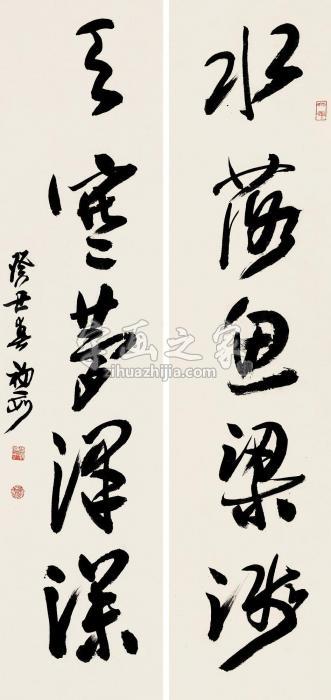 水落鱼梁浅
天寒梦泽深
癸丑春
字画之家
zihuazhijia.com